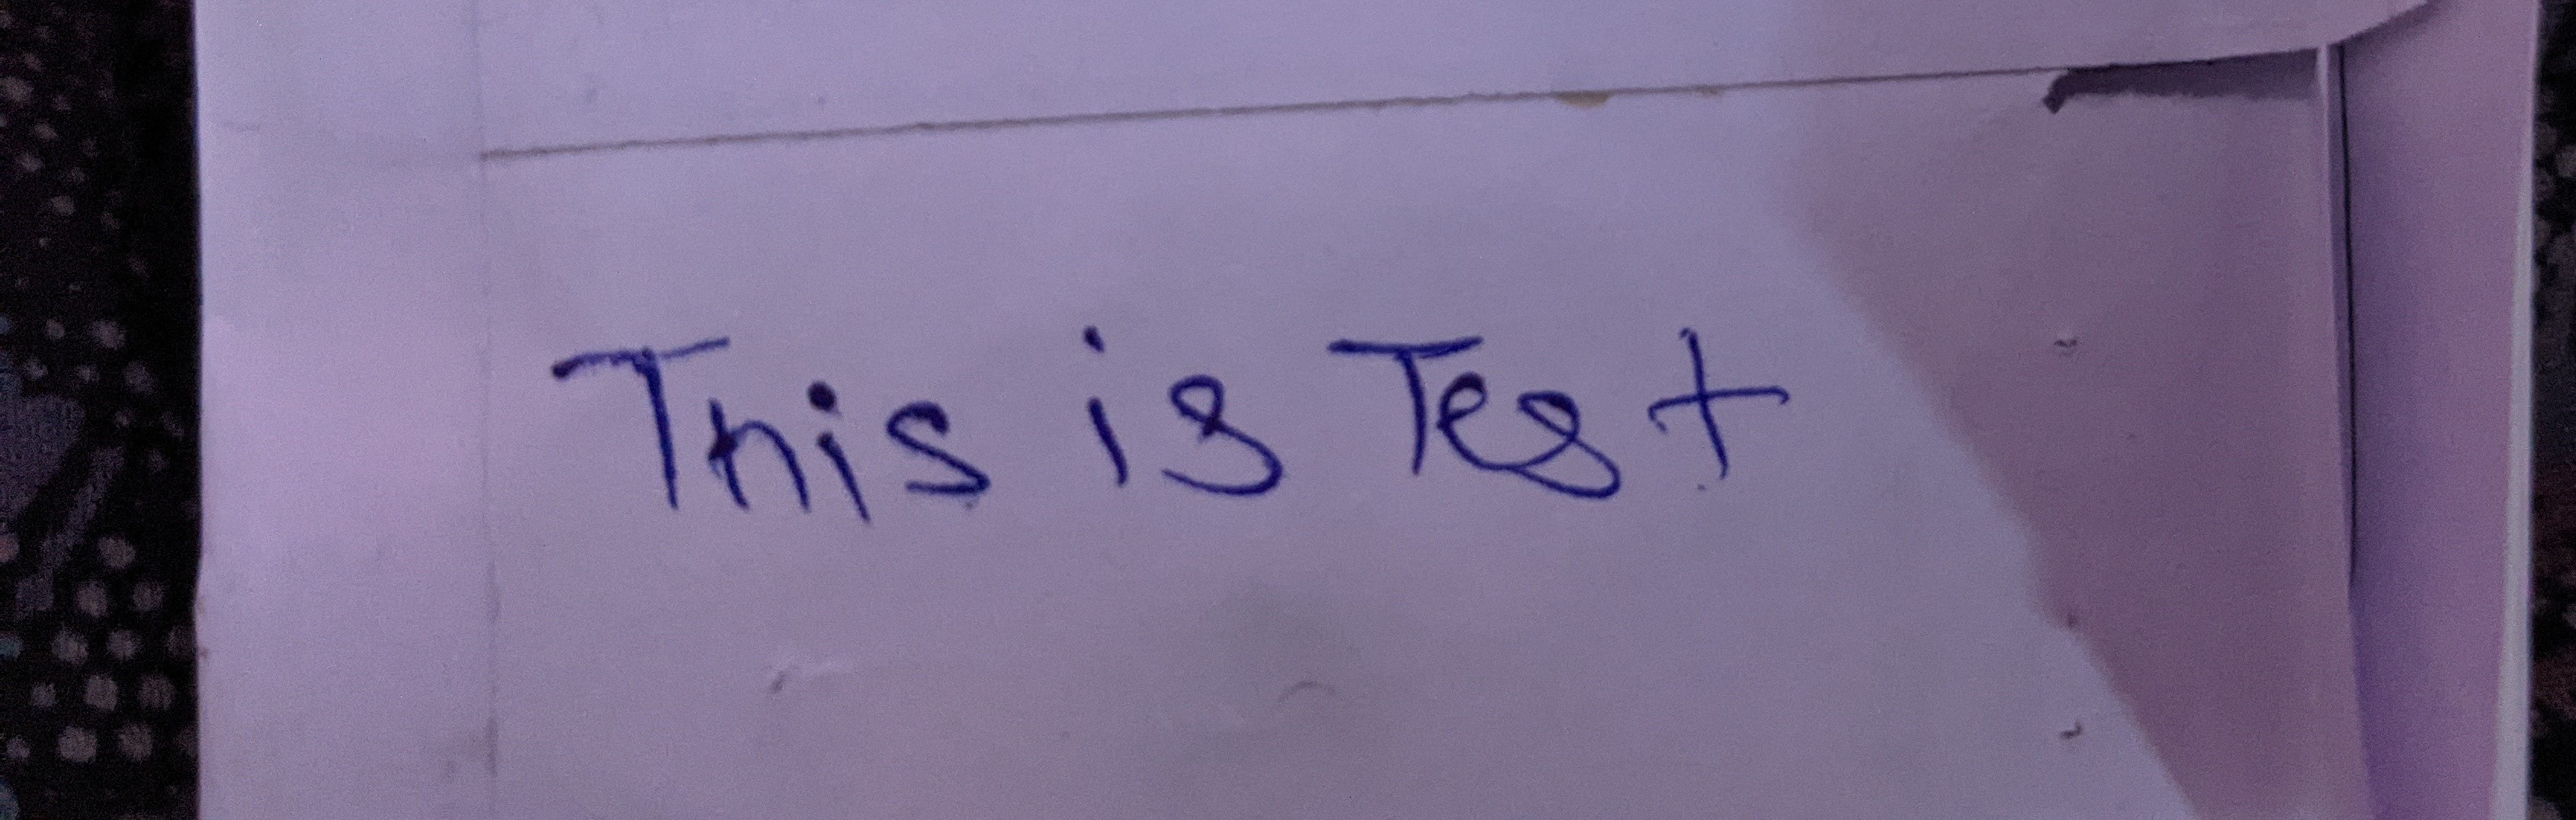 This is Test